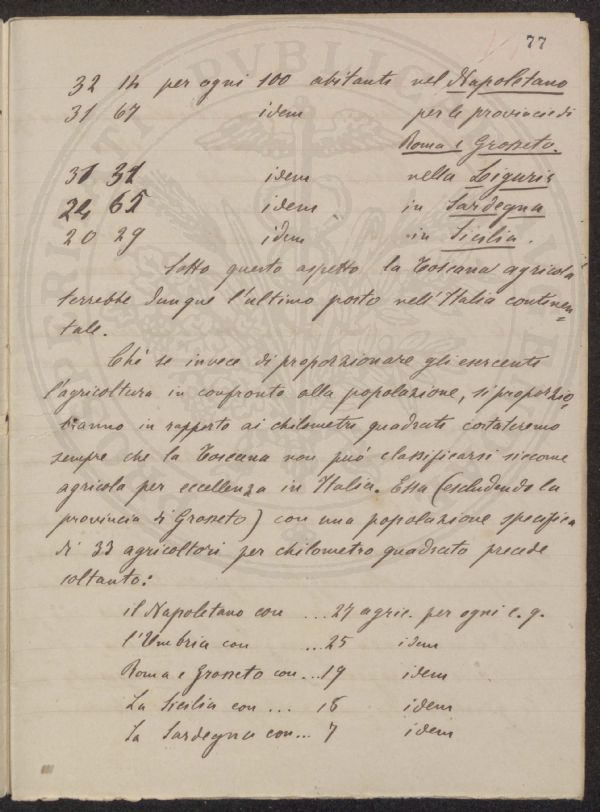 77
32 14 per ogni 100 abitanti nel Napoletano
31 67 idem per le provincie di
Roma e Grosseto.
31 31 idem nella Liguria
24 65 idem in Sardegna
20 29 idem in Sicilia.
Sotto questo aspetto la Toscana agricola
terrebbe dunque l'ultimo posto nell'Italia continen=
tale.
Chè se invece di proporzionare gli esercenti
l'agricoltura in confronto alla popolazione, si proporzio,
ranno in rapporto ai chilometri quadrati costateremo
sempre che la Toscana non può classificarsi siccome
agricola per eccellenza in Italia. Essa (escludendo la
provincia di Grosseto) con una popolazione specifica
di 33 agricoltori per chilometro quadrato precede
soltanto:
il Napoletano con ... 27 agric. per ogni c. q.
l'Umbria con ... 25 idem
Roma e Grosseto con ... 19 idem
La Sicilia con ... 16 idem
La Sardegna con ... 7 idem